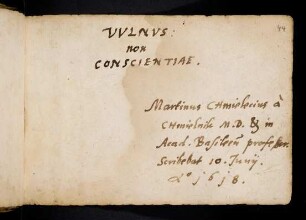 VVLNVS
non
CONSCIENTIAE.
94
Martinus CHmielecius à
CHmielnik M.D. & in
Acad. Basileen̄ professor
Scribebat 10. Junij.
Aº 1618.